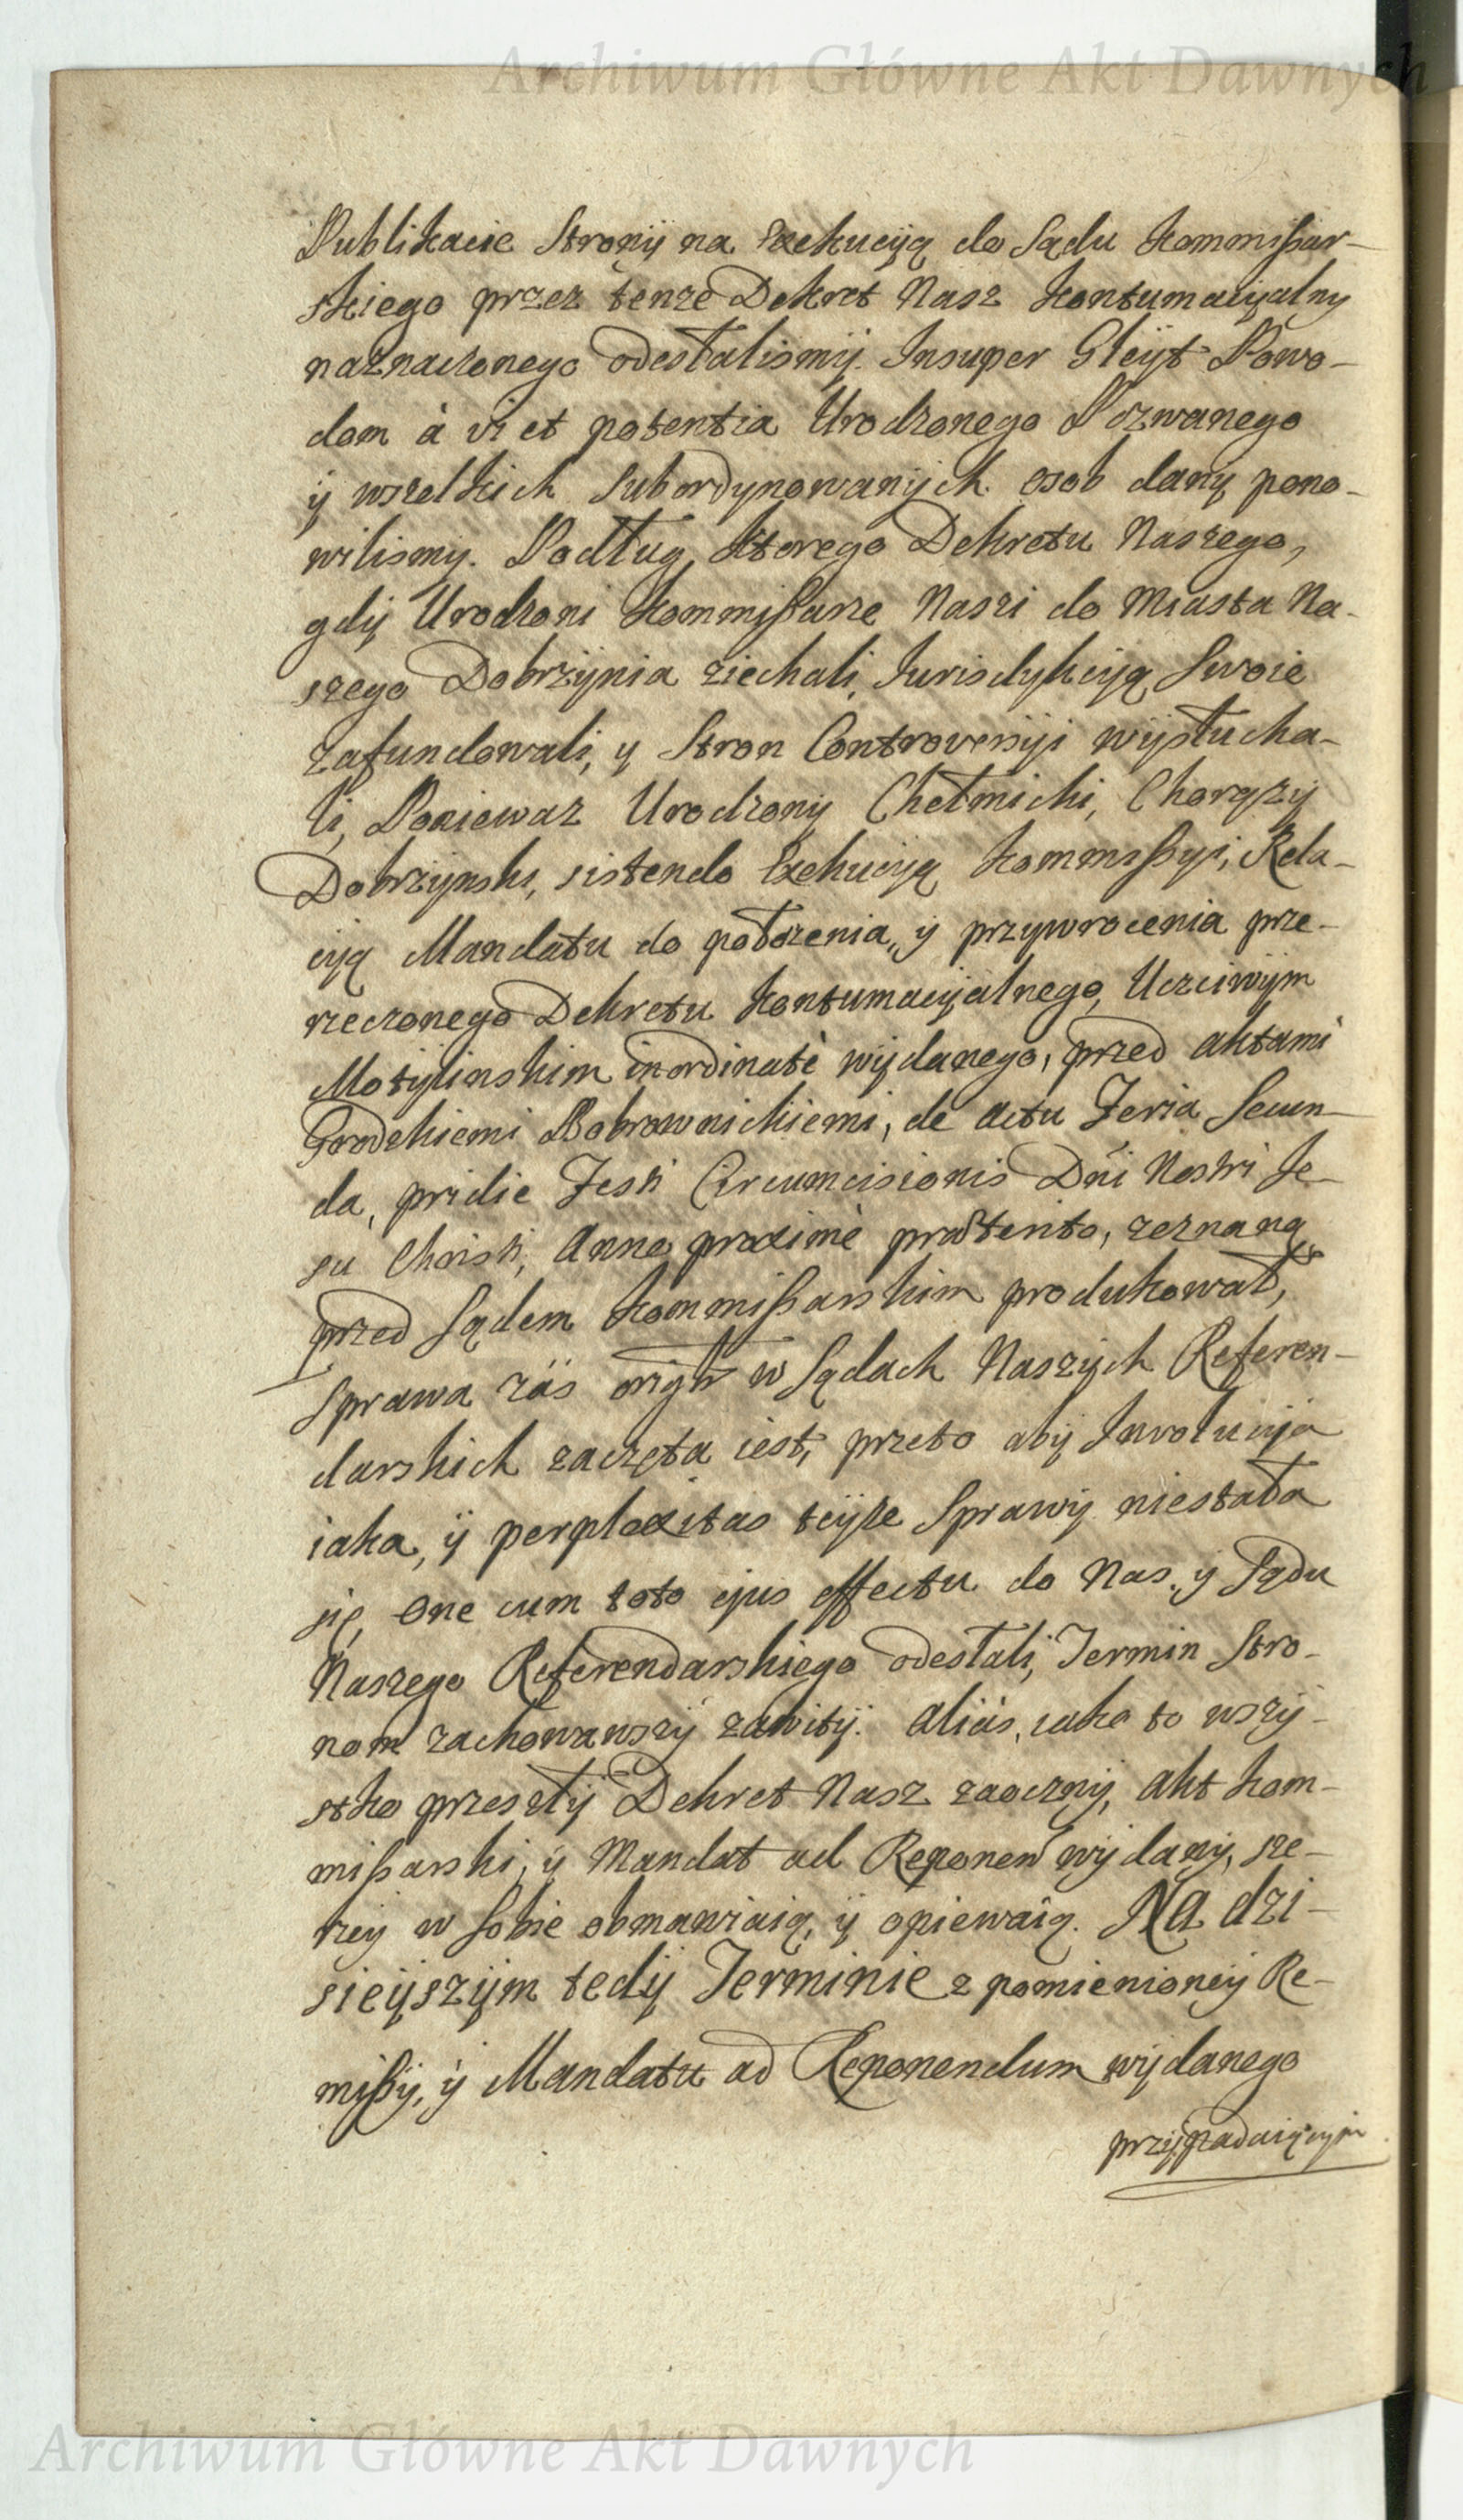 Archiwum Główne Akt Dawnych
Publikacie Strony na Exekucyą do Sądu Kommißar-
skiego przez tenze Dekret Nasz Kontumacyalny
naznaczonego odesłalismy. Insuper Gleyt Powo-
dom à vi et potentia Urodzonego Pozwanego
y wszelkich Subordynowanych osob dany pono-
wilismy. Podług ktorego Dekretu Naszego,
gdy Urodzeni Kommißarze Naszi do Miasta Na-
szego Dobrzynia ziechali, Jurisdykcyą Swoie
zafundowali, y Stron Controversyi wysłucha-
li, Poniewaz Urodzony Chełmicki, Chorązy
Dobrzynski, sistendo Exekucyą Kommißyi, Rela-
cyą Mandatu do połozenia, y przywrocenia prze-
rzeczonego Dekretu Kontumacyalnego, Uczciwym
Motylinskim inordinatè wydanego, przed aktami
Grodzkiemi Bobrownickiemi, de actu Feria Secun-
da, pridie Festi Circumcisionis Dni Nostri Je-
su Christi, Anno proximè præterito, zeznaną
przed Sądem Kommißarskim produkował,
Sprawa zás orignr w Sądach Naszych Referen-
darskich zaczęta iest, przeto aby Involucyja
iaka, y perplexitas teyze Sprawy niestała
się, One cum toto ejus effectu do Nas, y Sądu
Naszego Referendarskiego odesłali, Termin Stro-
nom zachowawszy zawity. aliàs, iako to wszy-
stko przeszły Dekret Nasz zaoczny, Akt Kom-
mißarski, y Mandat ad Reponen wydany, sze-
rzey w Sobie obmawiaią, y opiewaią. Na dzi-
sieyszym tedy Terminie z pomienioney Re-
mißy, y Mandatu ad Reponendum wydanego
przypadaiącym
Archiwum Główne Akt Dawnych